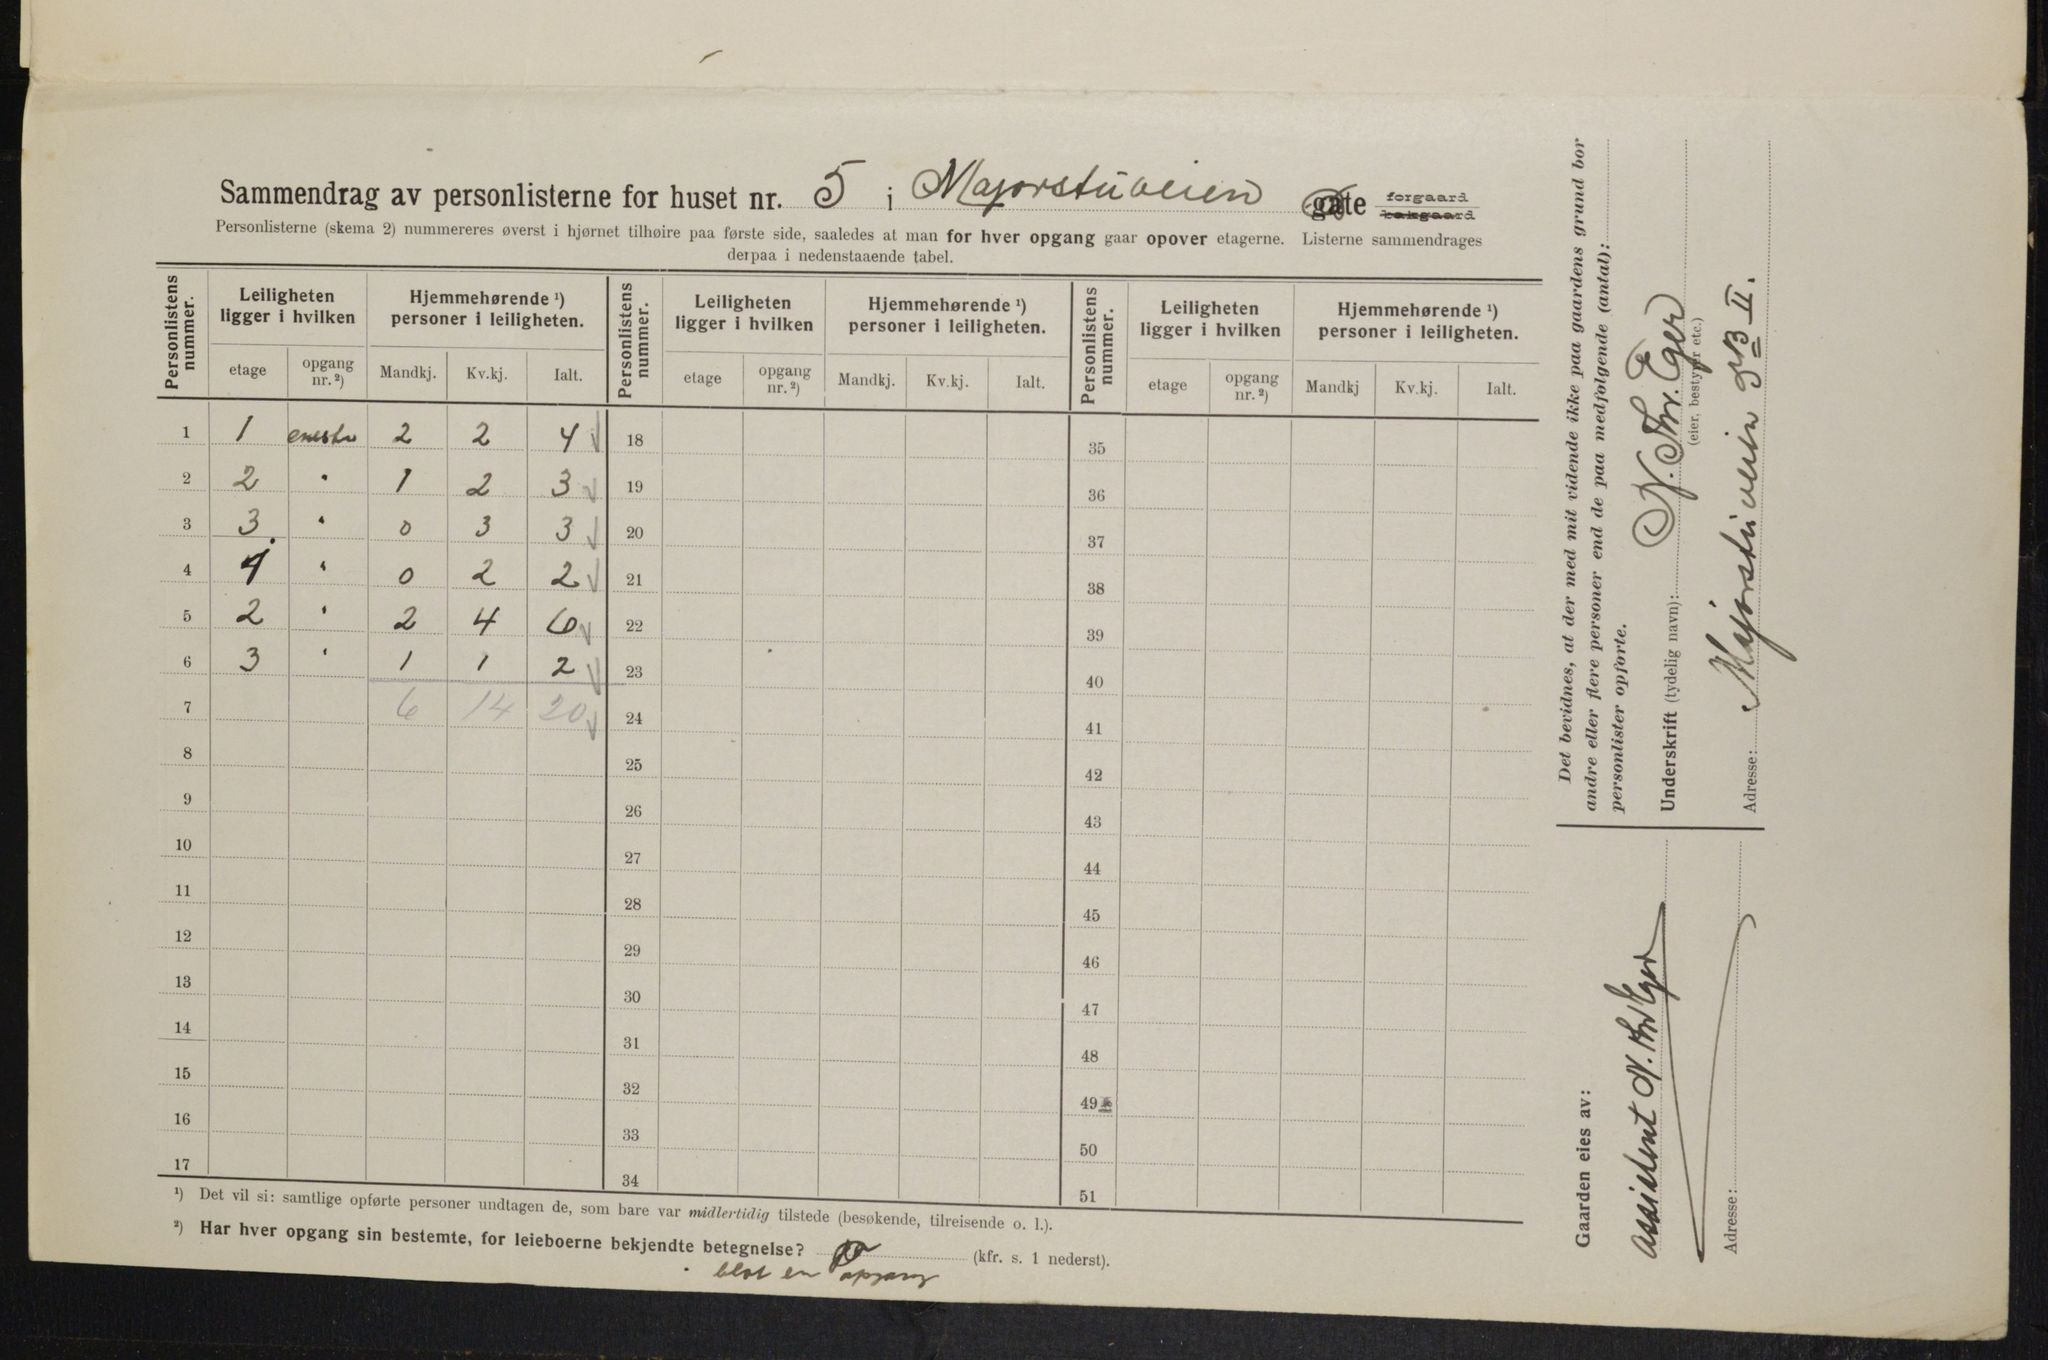 Sammendrag av personlisterne for huset nr. 5 i Majorstuveien gate forgaard bakgaard
Personlisterne (skema 2) nummereres øverst i hjørnet tilhøire paa første side, saaledes at man for hver opgang gaar opover etagerne. Listerne sammendrages
derpaa i nedenstaaende tabel.
Personlistens nummer. Leiligheten ligger i hvilken Hjemmehørende ¹) personer i leiligheten. Personlistens nummer. Leiligheten ligger i hvilken Hjemmehørende ¹) personer i leiligheten. Personlistens nummer. Leiligheten ligger i hvilken Hjemmehørende ¹) personer i leiligheten.
etage opgang nr. ²) Mandkj. Kv.kj. Ialt. etage opgang nr. ²) Mandkj. Kv.kj. Ialt. etage opgang nr. ²) Mandkj Kv.kj. Ialt.
1 1 eneste 2 2 4 18 35
2 2 " 1 2 3 19 36
3 3 " 0 3 3 20 37
4 4 " 0 2 2 21 38
5 2 " 2 4 6 22 39
6 3 " 1 1 2 23 40
7 6 14 20 24 41
8 25 42
9 26 43
10 27 44
11 28 45
12 29 46
13 30 47
14 31 48
15 32 49
16 33 50
17 34 51
¹) Det vil si: samtlige opførte personer undtagen de, som bare var midlertidig tilstede (besøkende, tilreisende o. l.).
²) Har hver opgang sin bestemte, for leieboerne bekjendte betegnelse? (kfr. s. 1 nederst).
blot en opgang
Det bevidnes, at der med mit vidende ikke paa gaardens grund bor
andre eller flere personer end de paa medfølgende (antal):
personlister opførte.
Underskrift (tydelig navn): N. Thr. Eger
(eier, bestyrer etc.)
Adresse: Majorstuveien 3B II.
Gaarden eies av:
Assistent N. Thr Eger
Adresse: